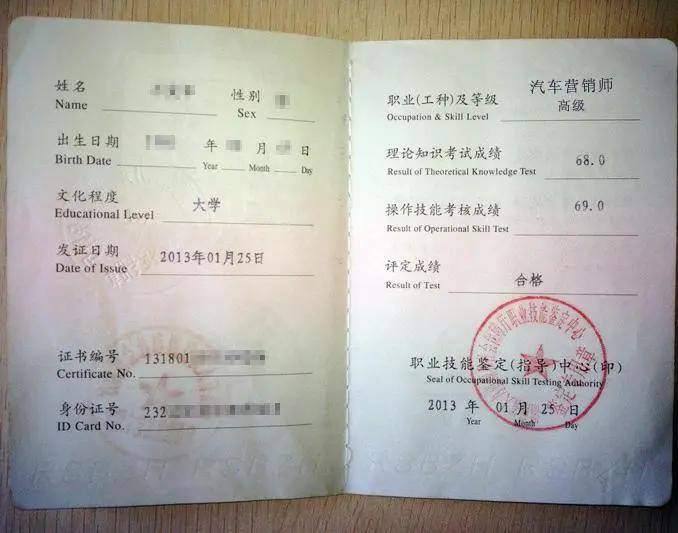 姓名 性别
Name Sex
出生日期 年 月 日
Birth Date Year Month Day
文化程度 大学
Educational Level
发证日期 2013年01月25日
Date of Issue
证书编号 131801
Certificate No.
身份证号 232
ID Card No.
汽车营销师
职业(工种)及等级 高级
Occupation & Skill Level
理论知识考试成绩 68.0
Result of Theoretical Knowledge Test
操作技能考核成绩 69.0
Result of Operational Skill Test
评定成绩 合格
Result of Test
职业技能鉴定中心
职业技能鉴定(指导)中心(印)
Seal of Occupational Skill Testing Authority
2013 年 01 月 25 日
Year Month Day